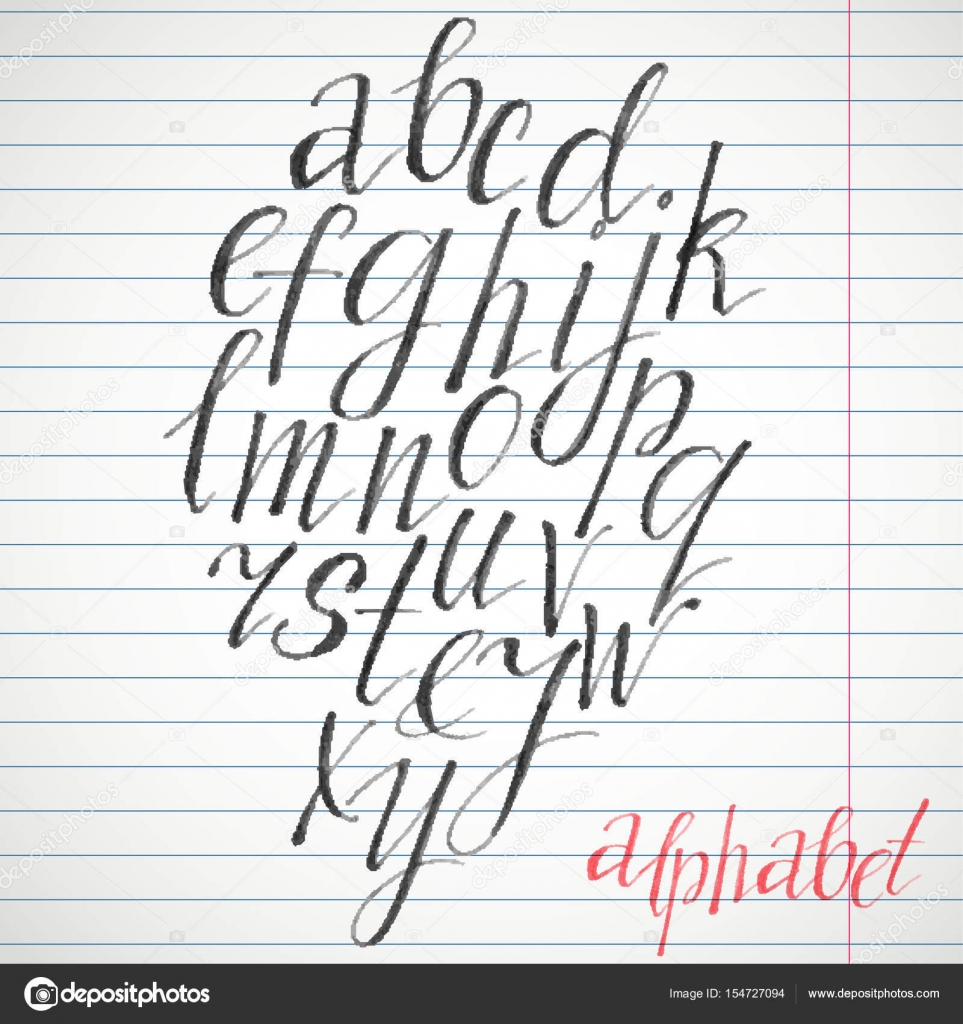 a b c d
e f g h i j k
l m n o p q
r s t u v w
e y
x y
alphabet
depositphotos
Image ID: 154727094 www.depositphotos.com